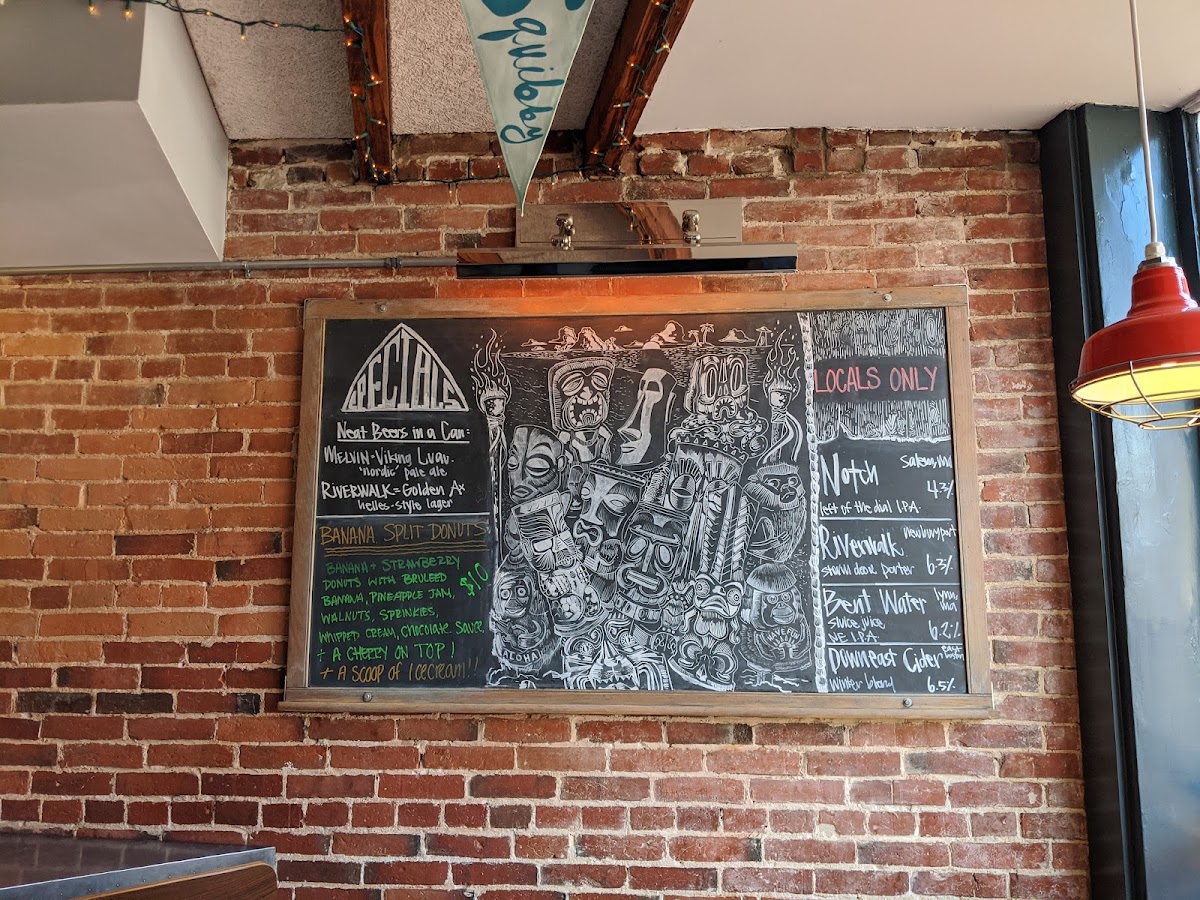 Squiloby
SPECIALS
Neat Beers in a Can:
MELVIN - Viking Luau.
'nordic' pale ale
RIVERWALK = Golden Ax
helles-style lager
BANANA SPLIT DONUTS
BANANA + STRAWBERRY
DONUTS WITH BRULEED
BANANA, PINEAPPLE JAM, $10
WALNUTS, SPRINKLES,
WHIPPED CREAM, CHOCOLATE SAUCE
+ A CHERRY ON TOP!
+ A SCOOP OF ICECREAM!!
ALOHA
TAVERN
LOCALS ONLY
Notch Salem, MA
4.3%
left of the dial I.P.A.
Riverwalk newburyport
6.3%
porter
Bent Water lynn, MA
sluice juice
NE I.P.A. 6.2%
Downeast Cider east boston
Winter blend 6.5%